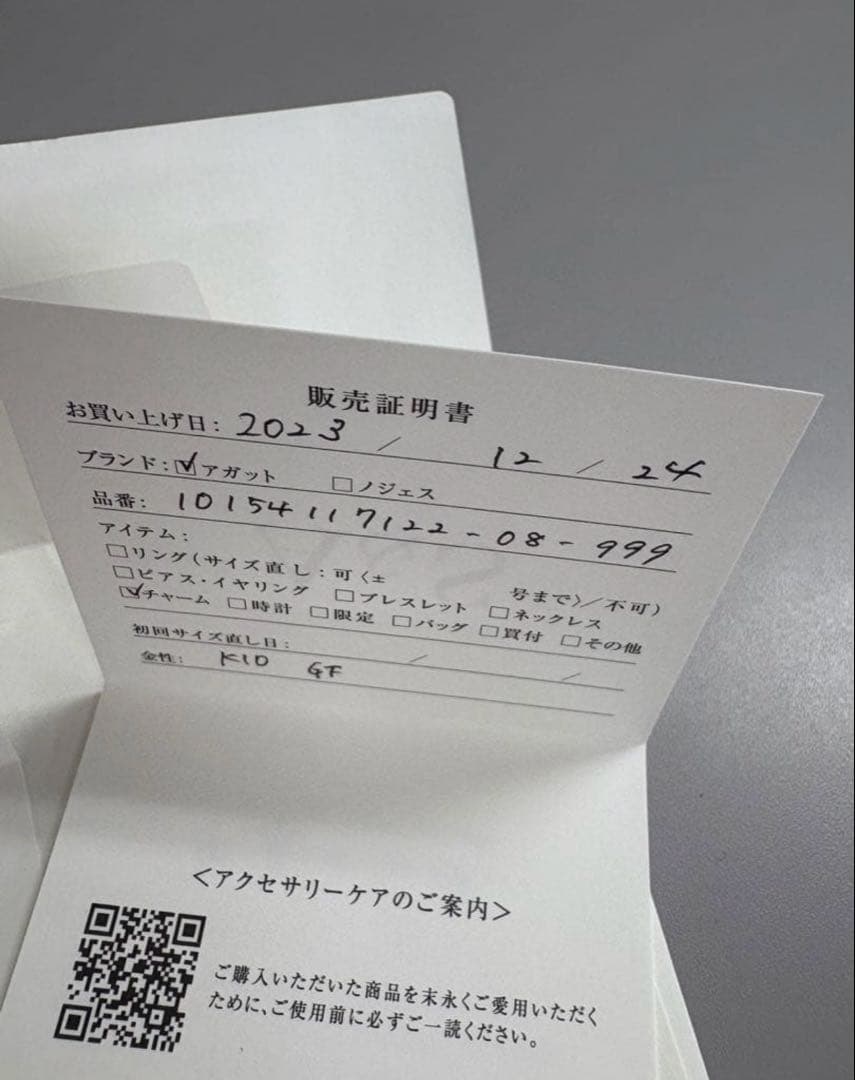 販売証明書
お買い上げ日: 2023 / 12 / 24
ブランド: ☑アガット □ノジェス
品番: 10154117122-08-999
アイテム:
□リング(サイズ直し:可〈± 号まで〉/不可)
□ピアス・イヤリング □ブレスレット □ネックレス
☑チャーム □時計 □限定 □バッグ □買付 □その他
初回サイズ直し日: / /
金性: K10 GF
<アクセサリーケアのご案内>
ご購入いただいた商品を末永くご愛用いただく
ために、ご使用前に必ずご一読ください。